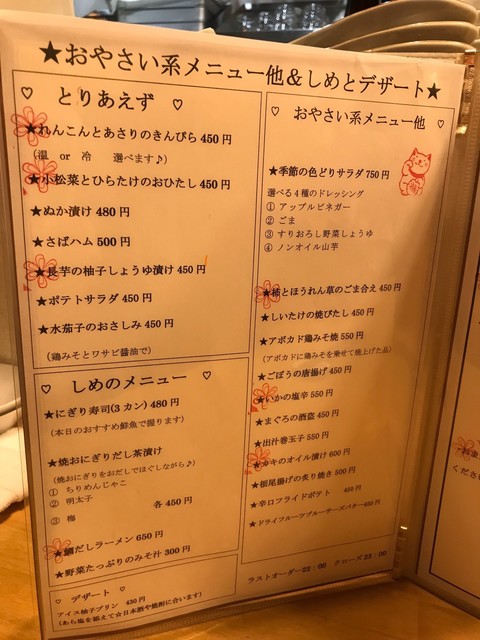 ★おやさい系メニュー他＆しめとデザート★
♡ とりあえず ♡
★れんこんとあさりのきんぴら 450 円
（温 or 冷 選べます♪）
★小松菜とひらたけのおひたし 450 円
★ぬか漬け 480 円
★さばハム 500 円
★長芋の柚子しょうゆ漬け 450 円
★ポテトサラダ 450 円
★水茄子のおさしみ 450 円
（鶏みそとワサビ醤油で）
♡ しめのメニュー ♡
★にぎり寿司(3 カン) 480 円
（本日のおすすめ鮮魚で握ります）
★焼おにぎりだし茶漬け
（焼おにぎりをおだしでほぐしながら♪）
① ちりめんじゃこ
② 明太子 各 450 円
③ 梅
★鯛だしラーメン 650 円
★野菜たっぷりのみそ汁 300 円
♡ デザート ♡
アイス柚子プリン 450 円
（あら塩を添えて☆日本酒や焼酎に合います）
♡ おやさい系メニュー他 ♡
★季節の色どりサラダ 750 円
選べる 4 種のドレッシング
① アップルビネガー
② ごま
③ すりおろし野菜しょうゆ
④ ノンオイル山芋
★柿とほうれん草のごま合え 450 円
★しいたけの焼びたし 450 円
★アボカド鶏みそ焼 550 円
（アボカドに鶏みそを乗せて焼上げた品）
★ごぼうの唐揚げ 450 円
★いかの塩辛 550 円
★まぐろの酒盗 450 円
★出汁巻玉子 550 円
★カキのオイル漬け 600 円
★栃尾揚げの炙り焼き 500 円
★辛口フライドポテト 450 円
★ドライフルーツブルーチーズバター450 円
ラストオーダー22：00 クローズ23：00